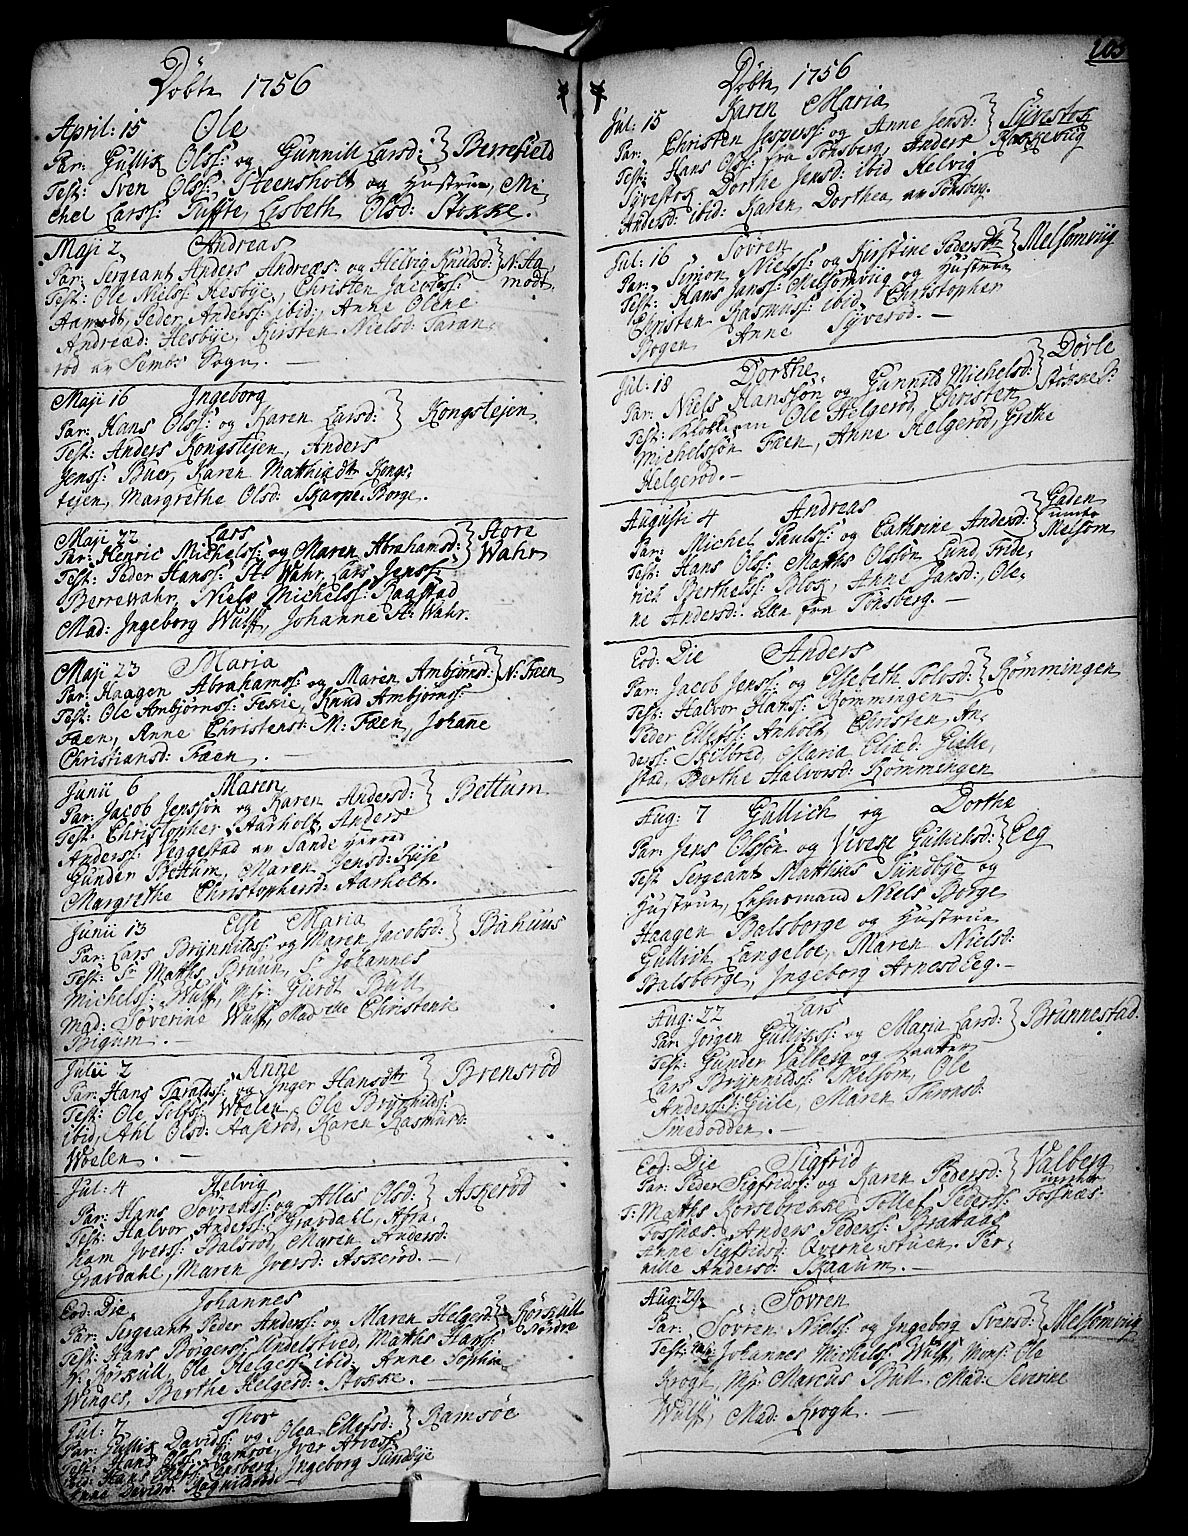 Døbte 1756
April: 15 Ole
Par: Gullik Olss: og Gunnild Larsd: } Berrefield
Test: Sven Olss: Heensholt og Hustrue, Mi-
chel Larss: Tuffte, Lisbeth Olsd: Stokke.
Maji 2 Andreas
Par: Sergeant Anders Andreæs: og Helvig Knudsd: } N: Aa
Test: Ole Nielss: Hesbye, Christen Jacobss: modt
Aamodt, Peder Anderss: ibid, Anne Olene
Andreæd: Hesbye, Kirsten Nielsd: Taran-
rød av Sembs Sogn. —
Maji 16 Ingeborg
Par: Hans Olss: og Karen Larsd: } Kongstejen
Test: Anders Kongstejen, Anders
Jenss: Buer, Karen Mathiædtr Kongs-
tejen, Margrethe Olsd: Skarpe Borge.
Maji 22 Lars
Par: Henric Michelss: og Maren Abrahamsd: } Store
Test: Peder Hanss: St: Wahr, Lars Jenss: Wahr
Berrewahr, Niels Michelss: Ragstad
Mad: Ingeborg Wulff, Johanne St: Wahr.
Maji 23 Maria
Par: Haagen Abrahamss: og Maren Ambjørnsd: } N: Fæen
Test: Ole Ambjørnss: Feske, Knud Ambjørnss:
Fæen, Anne Christensd: M: Fæen, Johanne
Christiansd: Fæen. —
Junii 6 Maren
Par: Jacob Jenssøn og Karen Andersd: } Bettum
Test: Christopher Aarholt, Anders
Anderss: Veggestad av Sande Herred
Gunder Bettum, Maren Jensd:
Margrethe Christophersd: Aarholt.
Junii 13 Else Maria
Par: Lars Brynnildss: og Maren Jacobsd: } Bahuus
Test: Sr Mathis Bruun, Sr Johannes
Michelss: Wulff, Msr: Gierdt Bull
Mad: Søverine Wulff, Madelle Christense
Bigum. —
Julii 2 Anne
Par: Hans Taraldss: og Inger Hansdtr } Brensrød
Test: Ole Tolfss: Woelen, Ole Brynnildss:
ibid, Ahl Olsd: Aaserød, Karen Rasmusd:
Woelen. —
Jul: 4 Helvig
Par: Hans Sørenss: og Alles Olsd: } Askerød
Test: Halvor Anderss: Gravdahl, Abra-
ham Iverss: Balsrød, Maren Andersd:
Gravdahl, Maren Iversd: Askerød. —
Eod: Die Johannes
Par: Sergeant Peder Anderss: og Maren Helgesd: } Rørkull
Test: Hans Børgerss: Undelstved, Mathis Hanss: Nordre
N: Rørkull, Ole Helgess: ibid: Anne Sophia
Winges, Berthe Helgesd: Stokke. —
Jul: 7 Thor
Par: Gullik Davidss: og Olea Ellefsd: } Ramsøe
Test: Hans Olss: Ramsøe, Iver Arvess:
ibid: Hans Tønsberg, Ingeborg Sundbye
Anna Davidsd: Ragnildrød
Døbte 1756
103
Jul: 15 Karen Maria
Par: Christen Jesperss: og Anne Jensd: } Syvestok
Test: Hans Olss: fra Tønsberg, Anders Rakkevuig
Syvestok, Dorthe Jensd: ibid Helvig
Andersd: ibid: Karen Dorthea av Tønsberg.
Jul: 16 Søvren
Par: Simon Nielss: og Kirstine Pedersdtr } Melsomvuig
Test: Hans Janss: Melsomvuig og Hustrue
Christen Rasmuss: ibid, Christopher
Bogen Anne Syverød. —
Jul: 18 Dorthe
Par: Niels Hanssøn og Gunnild Michelsd: } Døvle
Test: Klokkeren Ole Helgerød, Christen Stokke S:
Michelssøn Faen, Anne Helgerød, Grethe
Helgerød. —
Augusti 4 Andreas
Par: Michel Paulss: og Cathrine Andersd: } Gaden
Test: Hans Olss: Mathis Olssøn Lund, Fride- under
rich Berthelss: Blok, Anne Jansd: Ole- Melsom
ne Andersd: alle fra Tønsberg. —
Eod: Die Anders
Par: Jacob Jenss: og Elsebeth Tolvsd: } Rømmingen
Test: Halvor Hanss: Rømmingen
Peder Ellefss: Anholt, Christen An-
derss: Skilbred, Maria Eliæd: Gielle-
stad, Berthe Halvorsd: Rømmingen
Aug: 7 Gullich og Dorthe
Par: Jens Olssøn og Viveke Gullichsd: } Eeg
Test: Sergeant Matthias Sundbye og
Hustrue, Lehnsmand Niels Borge
Haagen Balsborge og Hustrue
Gullich Langeloe, Maren Nielsd:
Balsborge, Ingeborg Arnesd Eeg. —
Aug: 22 Lars
Par: Jørgen Gulliss: og Maria Larsd: } Brunnestad
Test: Gunder Valberg og Datter
Lars Brynnildss: Melsom, Ole
Anderss: Giele, Maren Thronsd:
Smedodden. —
Eod: Die Sigfrid
Par: Peder Sigfridss: og Karen Pedersd: } Valberg
T: Mathis Korsebrekke Tollef Pederss: under
Fossnæs Anders Pederss: Brataas Fossnæs
Anne Sigfridsd: Qverne-stuen. Per-
nille Andersd: Skaaum. —
Aug: 29 Søvren
Par: Søvren Nielss: og Ingeborg Svensd: } Melsomvuig
Test: Johannes Michelss: Wulff, Mons: Ole
Krogh, Msr: Marcus Bull, Mad: Severine
Wulff, Mad: Krogh. —